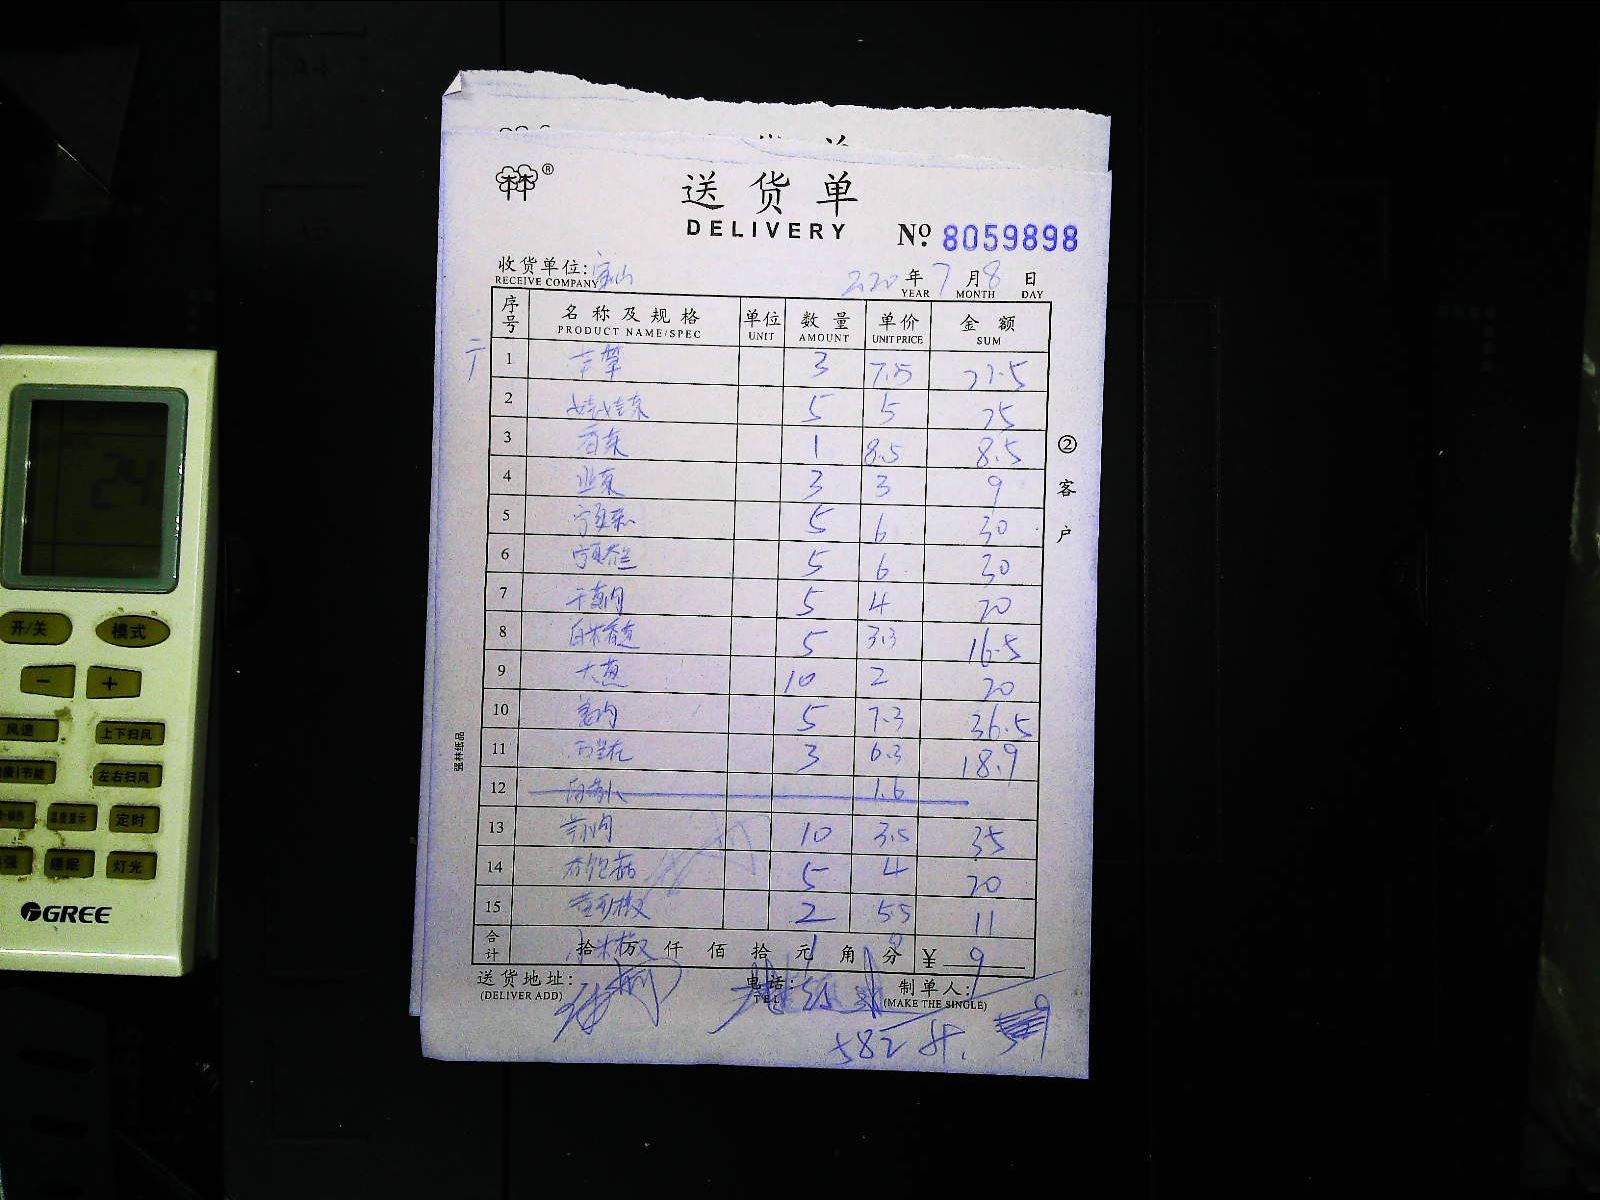 送货单
DELIVERY
№ 8059898
收货单位: 宝山 220年7月8日
RECEIVE COMPANY YEAR MONTH DAY
序号 名称及规格 单位 数量 单价 金额
PRODUCT NAME/SPEC UNIT AMOUNT UNIT PRICE SUM
1 3 7.5 22.5
2 娃娃菜 5 5 25
3 香菜 1 8.5 8.5
4 韭菜 3 3 9
5 宁夏菜心 5 6 30
6 宁夏芥兰 5 6 30
7 干葱肉 5 4 20
8 5 3.3 16.5
9 大葱 10 2 20
10 姜肉 5 7.3 36.5
11 西兰花 3 6.3 18.9
12 1.6
13 10 3.5 35
14 杏鲍菇 5 4 20
15 2 5.5 11
合计 拾 万 仟 佰 拾 元 角 分 ¥ 9
小米椒 1
送货地址: 电话: 制单人:
(DELIVER ADD) TEL (MAKE THE SINGLE)
582
②客户
强林纸品
24
开/关 模式
- +
风速 上下扫风
节能 左右扫风
温度显示 定时
睡眠 灯光
GREE